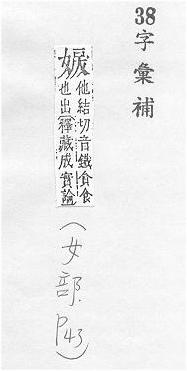 38字彙補
他結切音鐵貪食
也出釋藏成實論
(女部.P43)